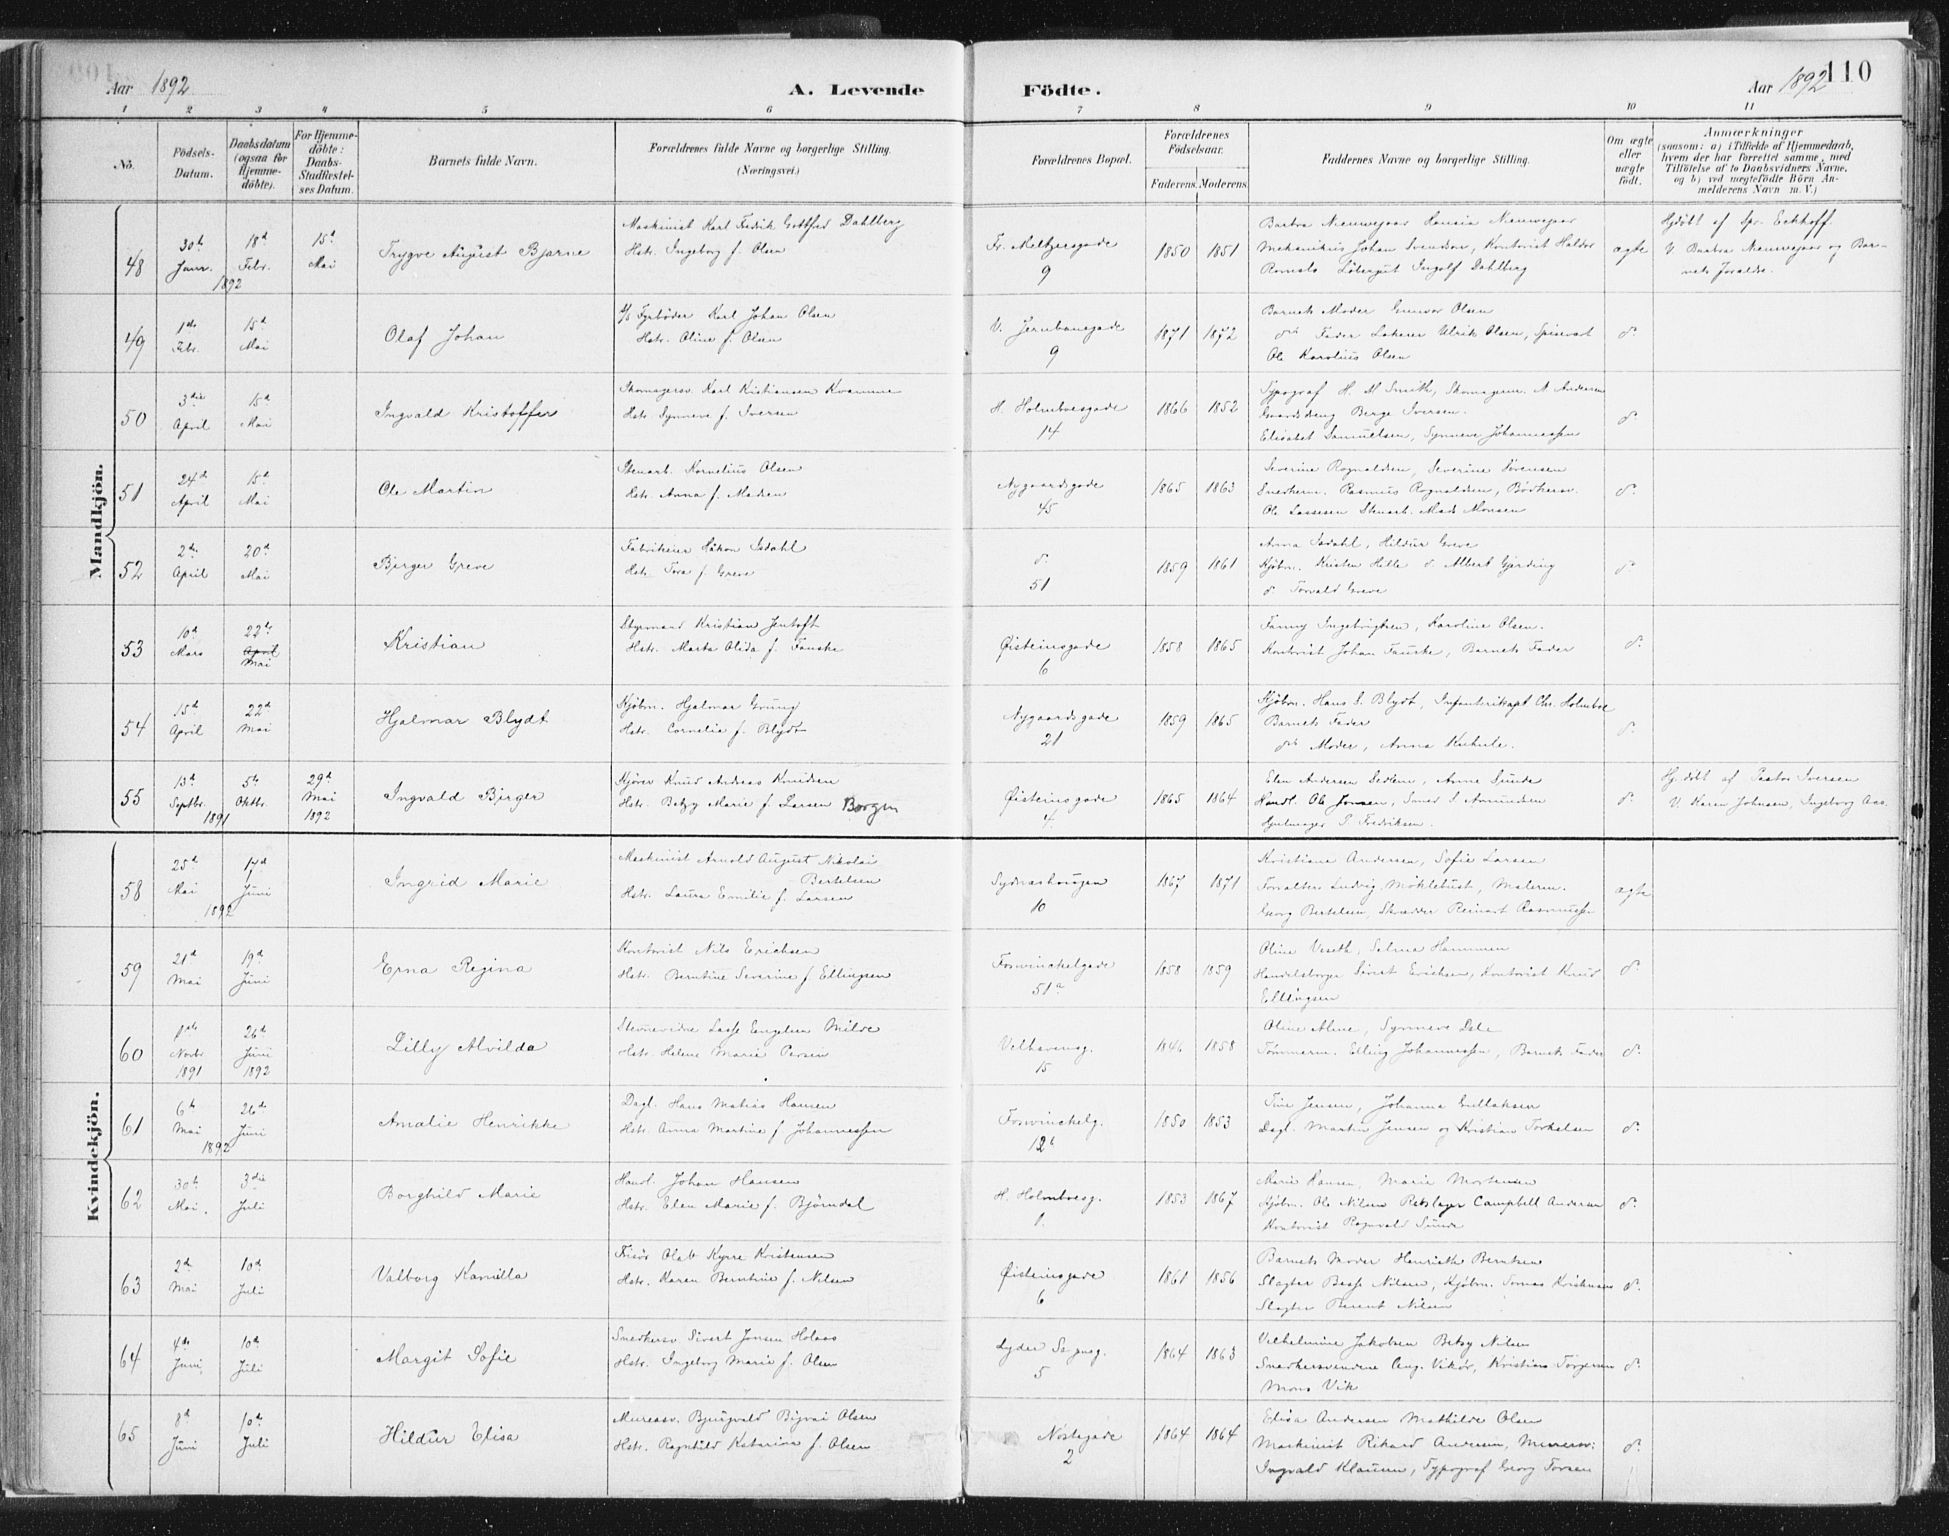 Aar 1892
A. Levende Födte.
Aar 1892
110
1 2 3 4 5 6 7 8 9 10 11
No.
Födsels-Datum.
Daabsdatum (ogsaa for Hjemme-döbte).
For Hjemme-döbte: Daabs-Stadfæstel-ses Datum.
Barnets fulde Navn.
Forældrenes fulde Navne og borgerlige Stilling.
(Næringsvei.)
Forældrenes Bopæl.
Forældrenes Födselsaar.
Faderens. Moderens.
Faddernes Navne og borgerlige Stilling.
Om ægte eller uægte födt.
Anmærkninger
(saasom: a) i Tilfælde af Hjemmedaab,
hvem der har forrettet samme, med
Tilföielse af to Daabsvidners Navne,
og b) ved uægtefödte Börn An-
melderens Navn m. V.)
Mandkjön.
48 30te Janr. 1892 18d Febr. 15d Mai Trygve August Bjarne
Maskinist Karl Fredrik Gottfred Dahlberg
Hstr. Ingeborg f. Olsen
Fr. Meltzersgade 9 1850 1851
Mekanikus Johan Svendsen, Kontorist Haldor
Ingolf Dahlberg
ægte
Hjdöbt af Spr. Eckhoff.
49 1ste Febr. 15d Mai Olaf Johan
Fyrböder Karl Johan Olsen
Hstr. Oline f. Olsen
V. Jernbanegade 9 1871 1872
Barnets Moder Gunvor Olsen
Fader Lakerer Ulrik Olsen, Spisevært
Ole Karolius Olsen
do
50 3die April 15d Mai Ingvald Kristoffer
Skomagersv. Karl Kristiansen Kvamme
Hstr. Synneve f. Iversen
H. Holmboesgade 14 1866 1852
Typograf H. M Smith, Skomagerm. A Andersen
Gaardsdreng Berge Iversen.
Elisabet Samuelsen, Synneve Johannessen
do
51 24d April 15d Mai Ole Martin
Stenarb. Kornelius Olsen
Hstr. Anna f. Madsen
Nygaardsgade 45 1865 1863
Severine Rognaldsen, Severine Sörensen
Snedkerm. Rasmus Rognaldsen, Bödkersv.
Ole Lassesen Stenarb. Mads Monsen
do
52 2den April 20d Mai Birger Greve
Fabrikeier Håkon Isdahl
Hstr. Tora f. Greve
do 51 1859 1861
Anna Isdahl, Hildur Greve
Kjöbm. Kristen Hille do Albert Gjerding
do Torvald Greve
do
53 10d Mars 22de April Mai Kristian
Styrmand Kristian Jentoft
Hstr. Marta Olida f. Fauske
Øisteinsgade 6 1858 1865
Fanny Ingebrigtsen, Karoline Olsen.
Kontorist Johan Fauske, Barnets Fader
do
54 15d April 22d Mai Hjalmar Blydt
Kjöbm. Hjalmar Grung
Hstr. Cornelia f. Blydt
Nygaardsgade 21 1859 1865
Kjöbm. Hans S. Blydt, Infanterikapt Chr. Holmboe
Barnets Fader
do Moder, Anna Kuhnle.
do
55 13d Septbr. 1891 5te Oktbr. 29d Mai 1892 Ingvald Birger
Skjöver Knud Andreas Knudsen
Hstr. Betzy Marie f. Larsen Borgen
Øisteinsgade 4. 1865 1864
Elen Andersen Sedlem, Anne Sunde
Handl. Ole Jonsen, Smed S Amundsen
Hjulmager S. Fredriksen.
do
Hj.döbt af Pastor Iversen
V. Karen Johnsen, Ingeborg Aas.
Kvindekjön.
58 25d Mai 1892 17d Juni Ingrid Marie
Maskinist Arnold August Nikolai Bertelsen
Hstr. Laura Emilie f. Larsen
Sydnæshaugen 10 1867 1871
Kristiane Andersen, Sofie Larsen
Forvalter Ludvig Möklebust, Malerm.
Georg Bertelsen, Skrædder Reinart Rasmussen
ægte
59 21d Mai 19d Juni Erna Regina
Kontorist Nils Erichsen
Hstr. Berntine Severine f. Ellingsen
Fosvinckelgade 51a 1858 1859
Oline Veseth, Selma Hammer
Handelsborger Sivert Erichsen, Kontorist Knud
Ellingsen
do
60 1ste Novbr. 1891 26d Juni 1892 Lilly Alvilda
Stevnevidne Lasse Engelsen Milde
Hstr. Helene Marie Persen
Velhavensg. 15 1858
Oline Aline, Synneve Dale
Tömmerm. Elling Johannessen, Barnets Fader
do
61 6te Mai 1892 26de Juni Amalie Henrikke
Dagl. Hans Matias Hansen
Hstr. Anna Martine f Johannessen
Fosvinckelg. 1850 1853
Tine Jensen, Johanna Gullaksen
Dagl. Martin Jensen og Kristian Torkelsen
do
62 30te Mai. 3die Juli Borghild Marie
Handl. Johan Hansen
Hstr. Elen Marie f. Björndal
H. Holmboesg. 1. 1853 1867
Marie Hansen, Marie Mortensen
Kjöbm. Ole Nilsen Rebslager Campbell Andersen
Kontorist Ragnvald Sunde
do
63 2d Mai 10de Juli Valborg Kamilla
Frisör Olab Kyrre Kristensen
Hstr. Karen Berntine f. Nilsen
Øisteinsgade 6 1861 1856
Barnets Moder Henriette Berntsen
Slagter Basse Nilsen, Kjöbm. Tomas Kristensen
Slagter Berent Nilsen
do
64 4de Juni, 10de Juli Margit Sofie
Snedkersv Sivert Jonsen Holaas
Hstr. Ingeborg Marie f. Olsen
Lyder Sagnsg. 5 1864 1863
Vilhelmine Jakobsen Betzy Nilsen
Snedkersvendene Aug. Vikör, Kristian Torgersen
Mons Vik
do
65 8d Juni 10de Juli Hildur Elisa
Muresv. Olsen
Hstr. Ragnhild Katarina f. Olsen
Nöstegade 2 1864 1864
Elisa Andersen Mathilde Olsen
Maskinist Rikard Andersen, Murersv:
Ingvald Klausen, Typograf Georg Torsen
do